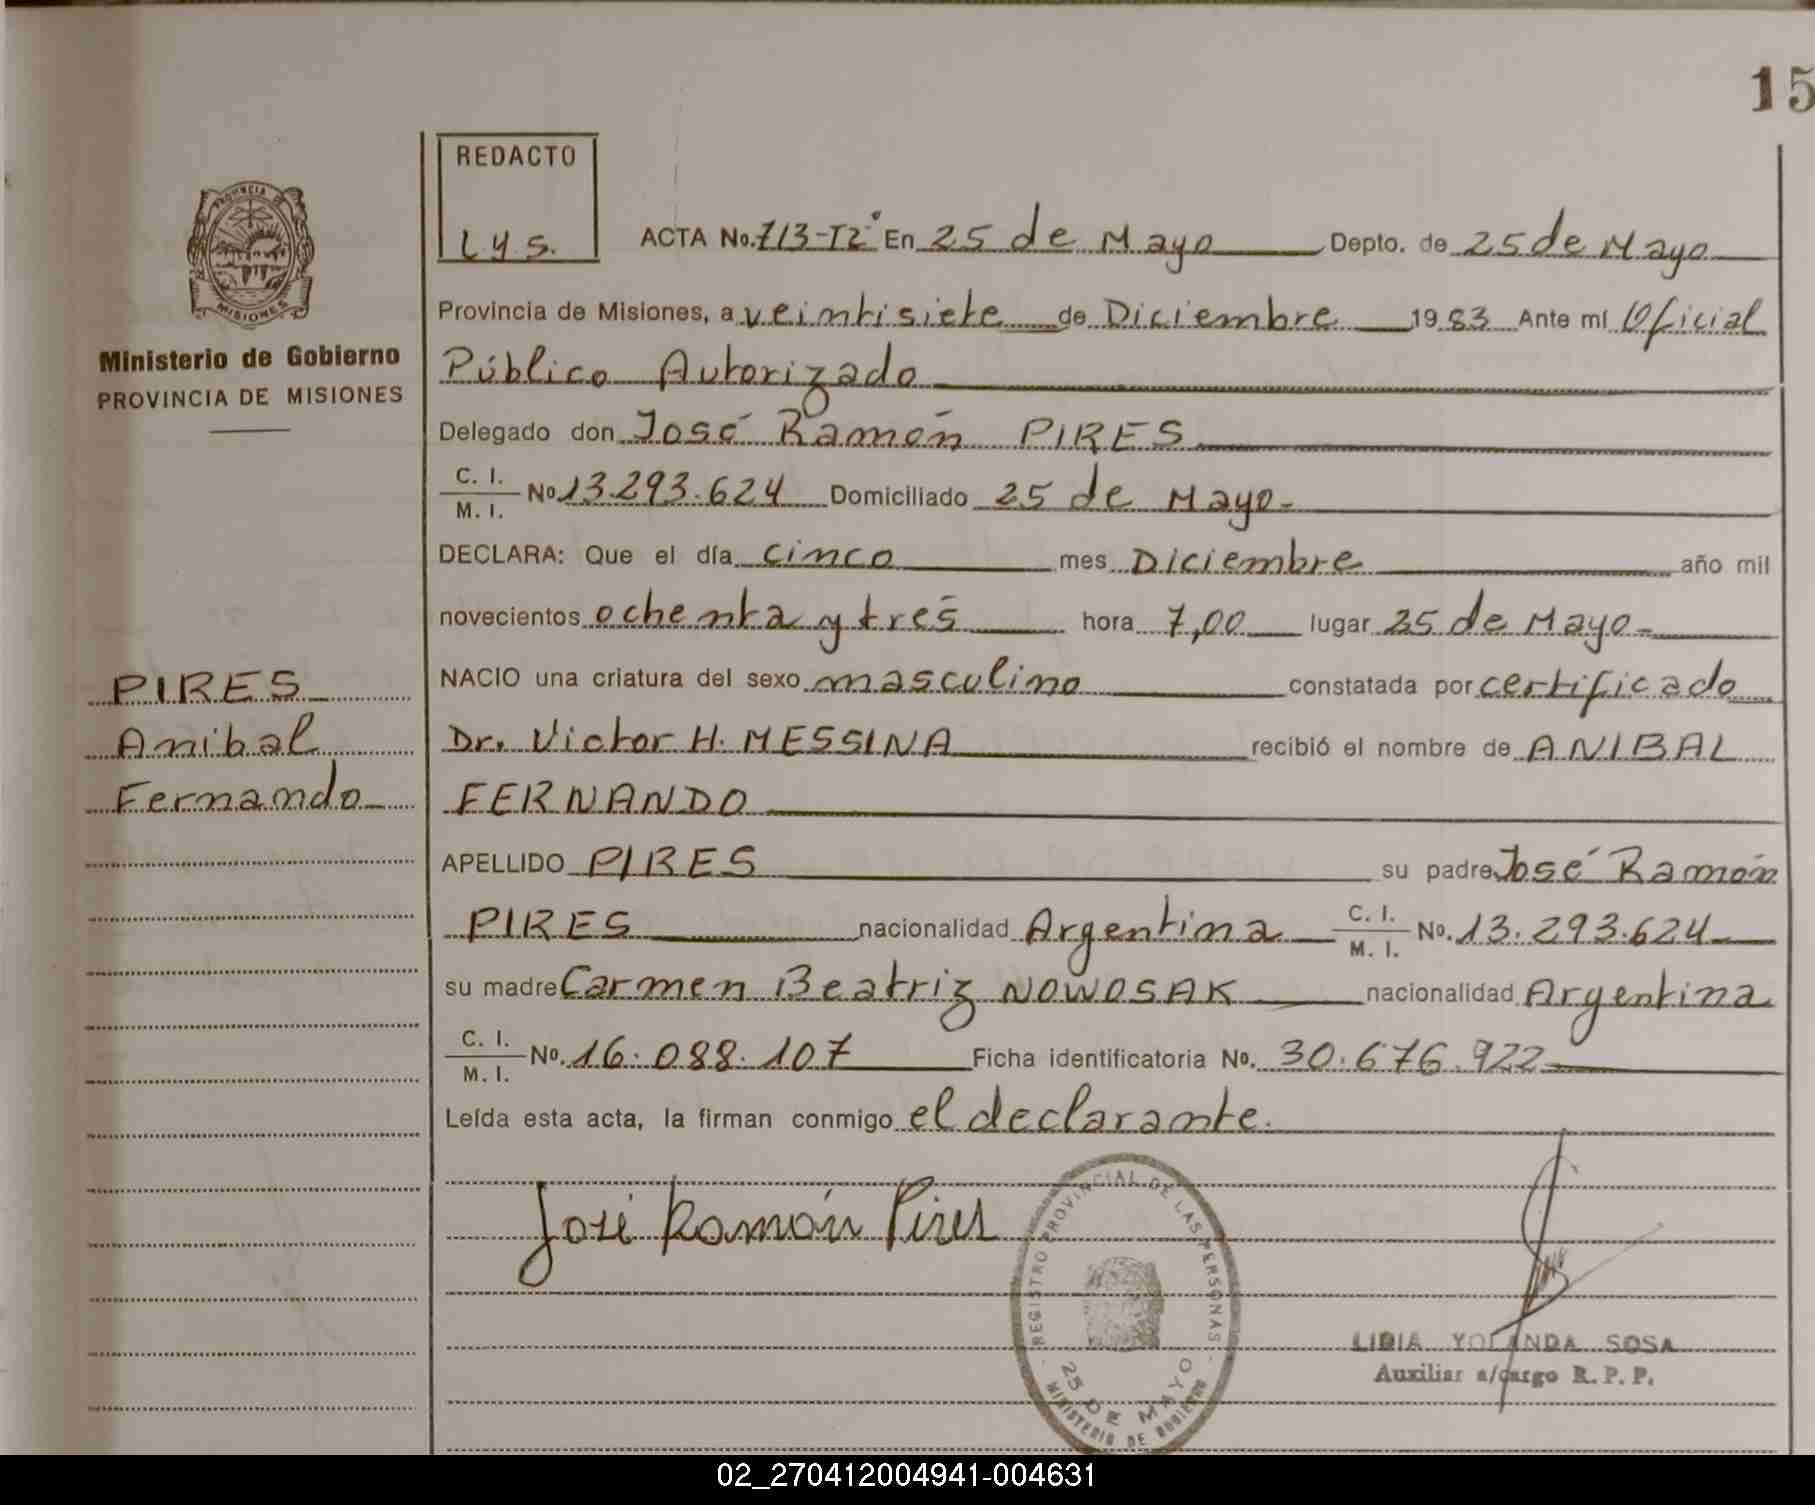 15
REDACTO
L y S.
PROVINCIA DE
MISIONES
Ministerio de Gobierno
PROVINCIA DE MISIONES
ACTA No. 713-T2° En 25 de Mayo Depto. de 25 de Mayo
Provincia de Misiones, a veintisiete de Diciembre 1983 Ante mí Oficial
Público Autorizado
Delegado don José Ramón PIRES
C. I. / M. I. No 13.293.624 Domiciliado 25 de Mayo-
DECLARA: Que el día cinco mes Diciembre año mil
novecientos ochenta y tres hora 7,00 lugar 25 de Mayo-
NACIO una criatura del sexo masculino constatada por certificado
Dr. Victor H. MESSINA recibió el nombre de ANIBAL
FERNANDO
PIRES
Anibal
Fernando
APELLIDO PIRES su padre José Ramón
PIRES nacionalidad Argentina C. I. / M. I. No. 13.293.624
su madre Carmen Beatriz NOWOSAK nacionalidad Argentina
C. I. / M. I. No. 16.088.107 Ficha identificatoria No. 30.676.922
Leída esta acta, la firman conmigo el declarante.
José Ramón Pires
REGISTRO PROVINCIAL DE LAS PERSONAS
25 DE MAYO
MINISTERIO DE GOBIERNO
LIDIA YOLANDA SOSA
Auxiliar a/cargo R. P. P.
02_270412004941-004631